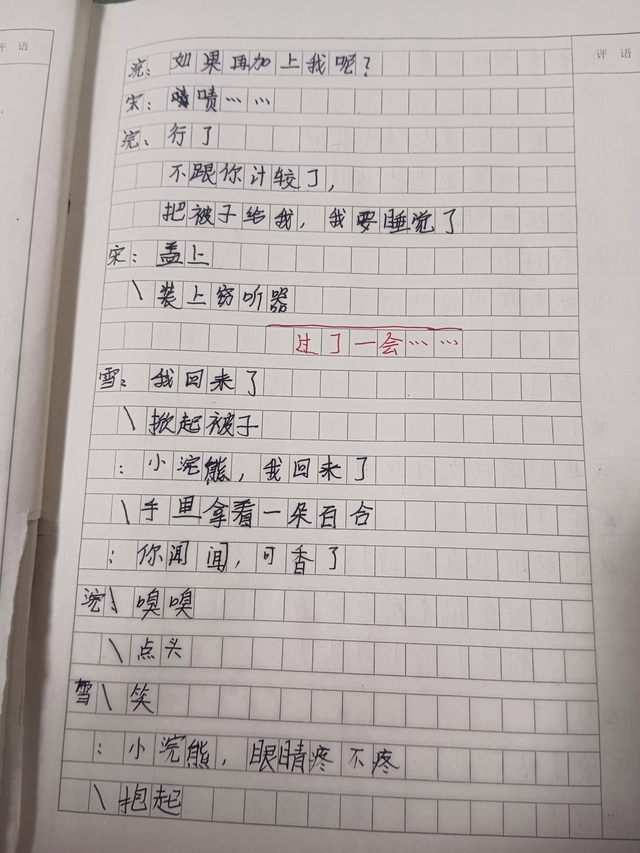 评语
评语
浣：如果再加上我呢？
宋：啧……
浣：行了
不跟你计较了，
把被子给我，我要睡觉了
宋：盖上
\装上窃听器
过了一会……
雪：我回来了
\掀起被子
：小浣熊，我回来了
\手里拿着一朵百合
：你闻闻，可香了
浣\嗅嗅
\点头
雪\笑
：小浣熊，眼睛疼不疼
\抱起